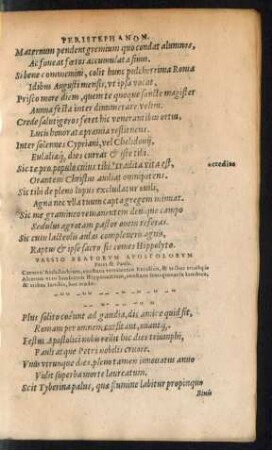 PERISTEPHANON.
Maternum pendent gremium quo condat alumnos,
Ac foueat fœtos accumulata sinus.
Si bene commemini, colit hunc pulcherrima Roma
Idibus Augusti mensis, vt ipsa vocat,
Prisco more diem, quem te quoque sancte magister
Annua festa inter dinumerare velim.
Crede salutigeros feret hic venerantibus ortus,
Lucis honoratæ præmia restituens.
Inter solennes Cypriani, vel Chelidonij,
Eulaliæq́; dies currat & iste tibi.
Sic te pro populo cuius tibi tradita vita est,
Orantem Christus audiat omnipotens.
Sic tibi de pleno lupus excludatur ouili,
Agna nec vlla tuum capta gregem minuat.
Sic me gramineo remanentem denique campo
Sedulus ægrotam pastor ouem referas.
Sic cum lacteolis aulas compleueris agnis,
Raptus & ipse sacro sis comes Hippolyto.
PASSIO BEATORVM APOSTOLORVM
Petri & Pauli.
Plus solito coëunt ad gaudia, dic amice quid sit,
Romam per omnem cursitant, ouantq́;.
Festus Apostolici nobis redit hic dies triumphi,
Pauli atque Petri nobilis cruore.
Vnus vterunque dies, pleno tamen innouatus anno
Vidit superba morte laureatum.
Scit Tyberina palus, quæ flumine labitur propinquo
Binis